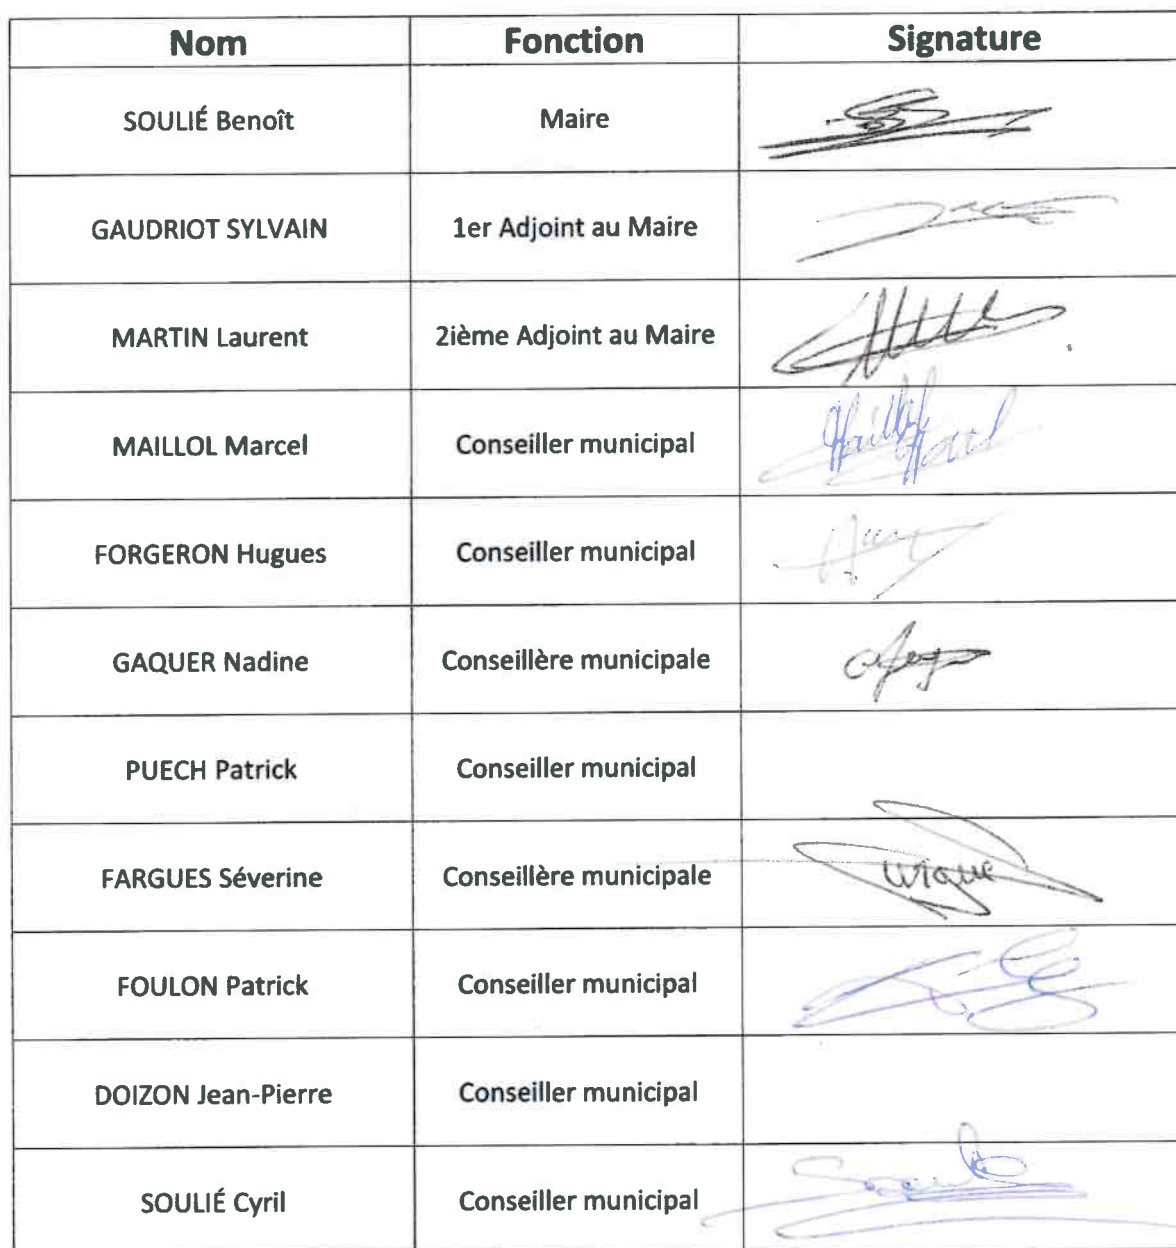 Nom Fonction Signature
SOULIÉ Benoît Maire
GAUDRIOT SYLVAIN 1er Adjoint au Maire
MARTIN Laurent 2ième Adjoint au Maire
MAILLOL Marcel Conseiller municipal Maillol
Marcel
FORGERON Hugues Conseiller municipal
GAQUER Nadine Conseillère municipale
PUECH Patrick Conseiller municipal
FARGUES Séverine Conseillère municipale
FOULON Patrick Conseiller municipal
DOIZON Jean-Pierre Conseiller municipal
SOULIÉ Cyril Conseiller municipal